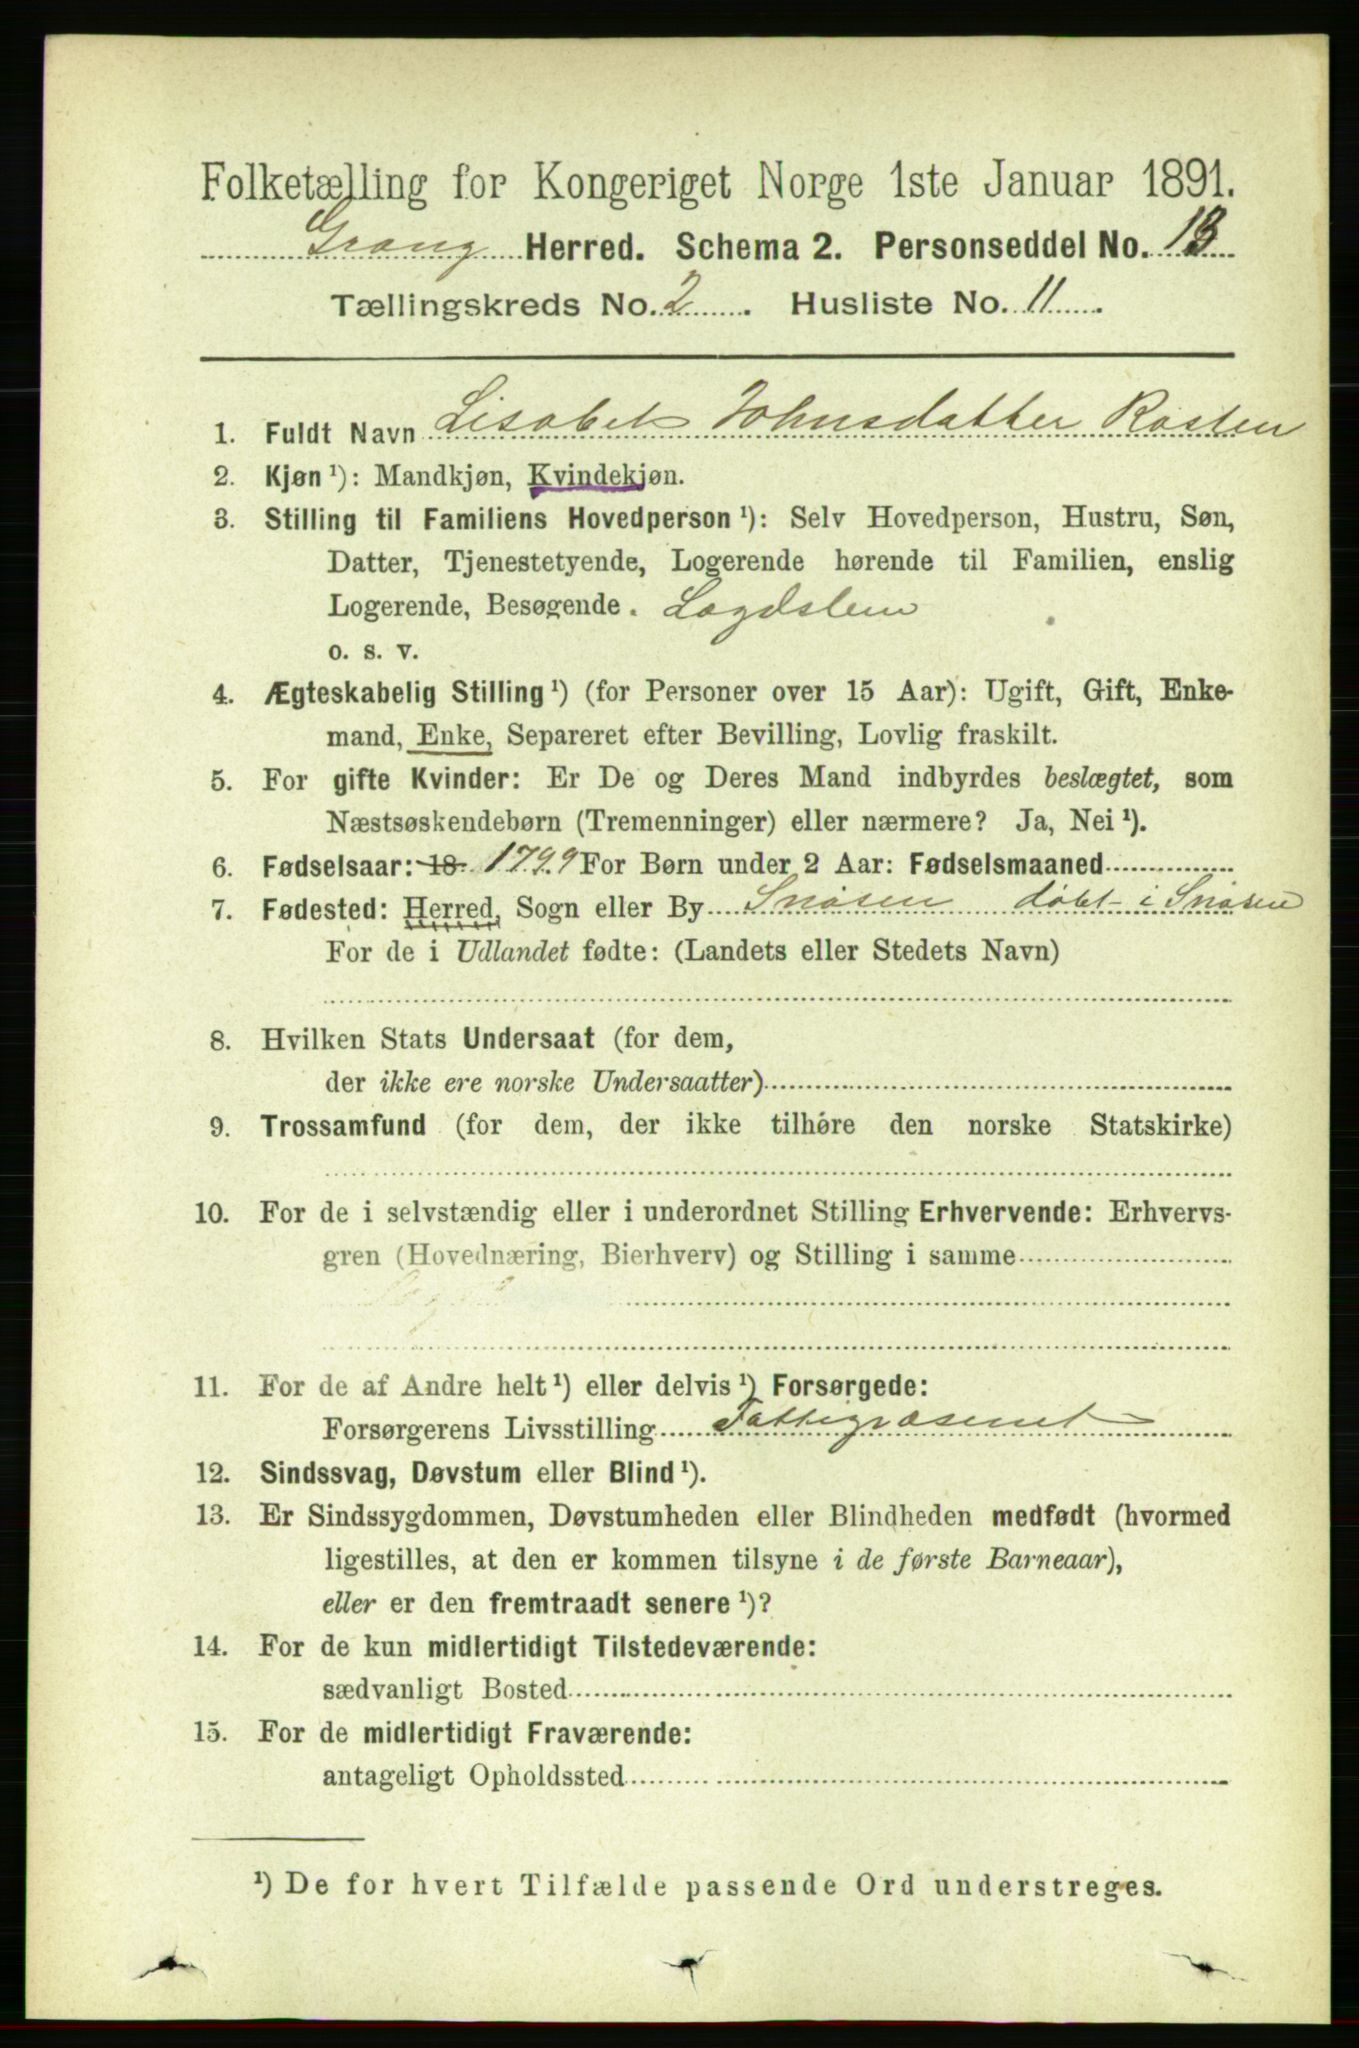 Folketælling for Kongeriget Norge 1ste Januar 1891.
Grong Herred. Schema 2. Personseddel No. 13
Tællingskreds No. 2. Husliste No. 11.
1. Fuldt Navn Lisabet Johnsdatter Rosten
2. Kjøn ¹): Mandkjøn, Kvindekjøn.
3. Stilling til Familiens Hovedperson ¹): Selv Hovedperson, Hustru, Søn,
Datter, Tjenestetyende, Logerende hørende til Familien, enslig
Logerende, Besøgende. Lægdslem
o. s. v.
4. Ægteskabelig Stilling ¹) (for Personer over 15 Aar): Ugift, Gift, Enke-
mand, Enke, Separeret efter Bevilling, Lovlig fraskilt.
5. For gifte Kvinder: Er De og Deres Mand indbyrdes beslægtet, som
Næstsøskendebørn (Tremenninger) eller nærmere? Ja, Nei ¹).
6. Fødselsaar: 18 1799 For Børn under 2 Aar: Fødselsmaaned
7. Fødested: Herred, Sogn eller By Snåsen døbt i Snåsen
For de i Udlandet fødte: (Landets eller Stedets Navn)
8. Hvilken Stats Undersaat (for dem,
der ikke ere norske Undersaatter)
9. Trossamfund (for dem, der ikke tilhøre den norske Statskirke)
10. For de i selvstændig eller i underordnet Stilling Erhvervende: Erhvervs-
gren (Hovednæring, Bierhverv) og Stilling i samme
11. For de af Andre helt ¹) eller delvis ¹) Forsørgede:
Forsørgerens Livsstilling Fattigvæsenet
12. Sindssvag, Døvstum eller Blind ¹).
13. Er Sindssygdommen, Døvstumheden eller Blindheden medfødt (hvormed
ligestilles, at den er kommen tilsyne i de første Barneaar),
eller er den fremtraadt senere ¹)?
14. For de kun midlertidigt Tilstedeværende:
sædvanligt Bosted
15. For de midlertidigt Fraværende:
antageligt Opholdssted
¹) De for hvert Tilfælde passende Ord understreges.